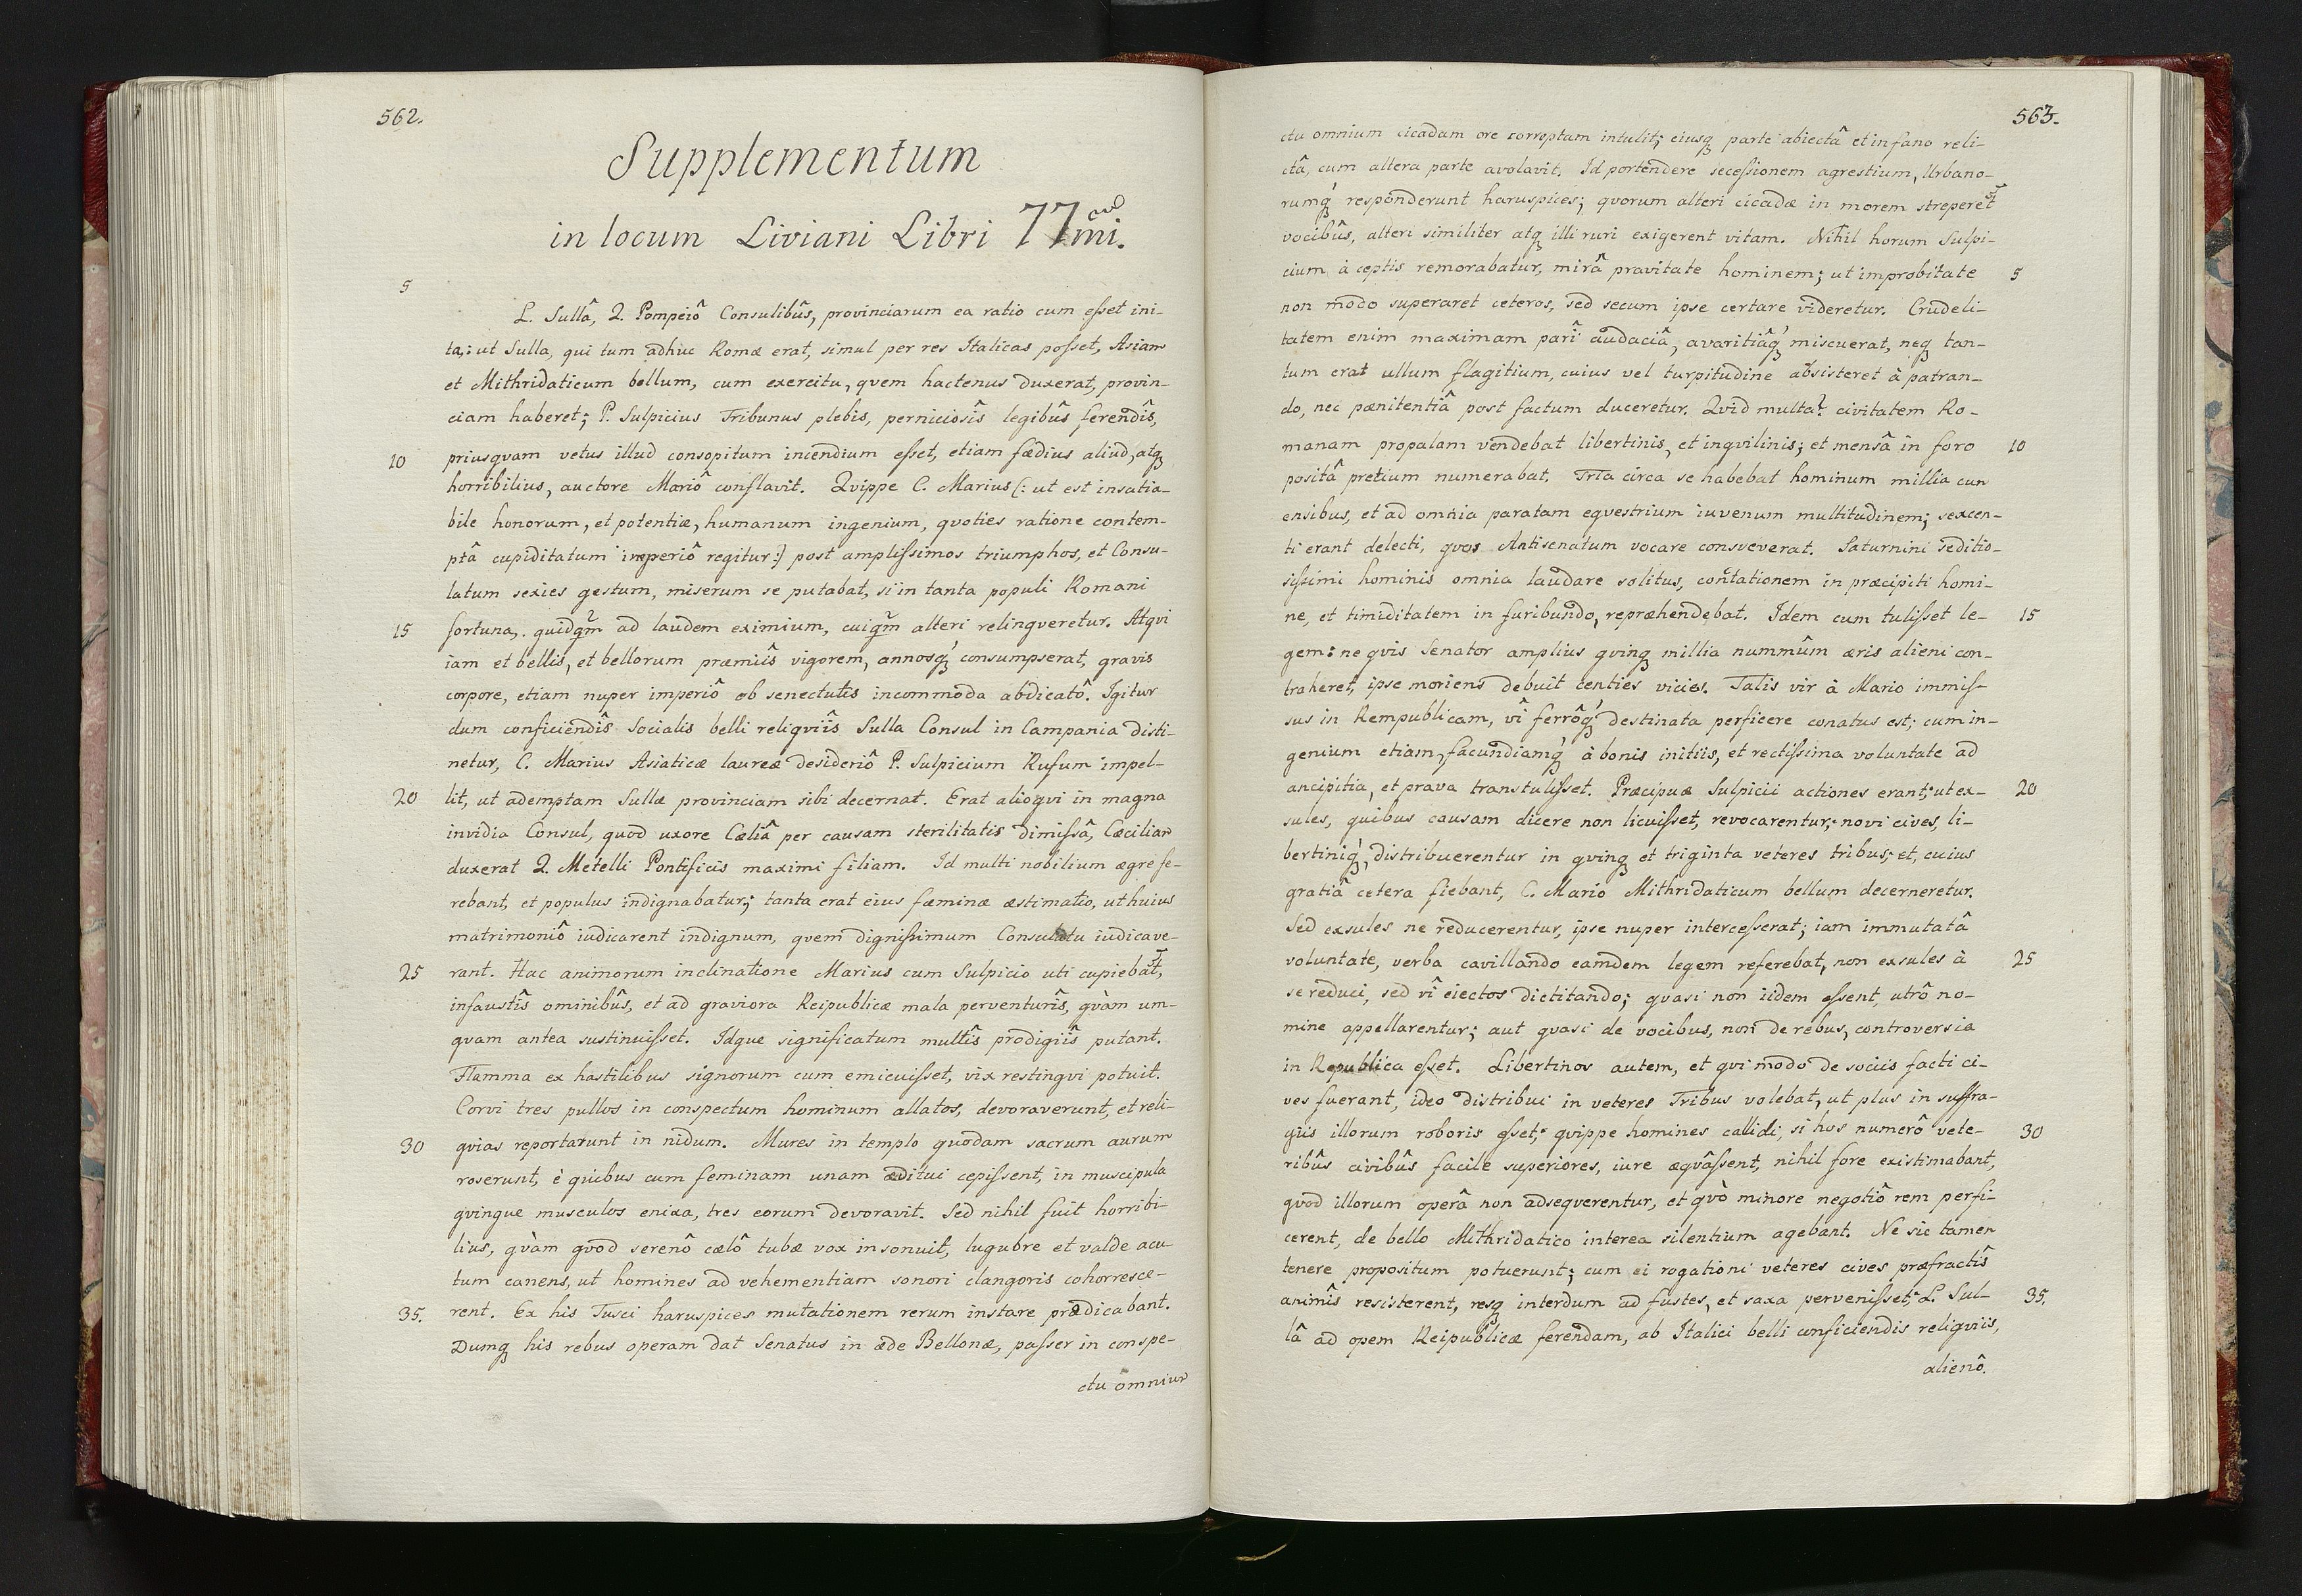 562.
Supplementum
in locum Liviani Libri 77mi.
5
L. Sullâ, Q. Pompeiô Consulibûs, provinciarum ea ratio cum esset ini-
ta,: ut Sulla, qui tum adhuc Romæ erat, simul per res Italicas posset, Asiam
et Mithridaticum bellum, cum exercitu, qvem hactenus duxerat, provin-
ciam haberet; P. Sulpicius Tribunus plebis, perniciosîs legibûs ferendîs,
10 priusqvam vetus illud consopitum incendium esset, etiam fœdius aliud, atq
horribilius, auctore Mariô conflavit. Qvippe C. Marius (: ut est insatia-
bile honorum, et potentiæ, humanum ingenium, qvoties ratione contem-
ptâ cupiditatum imperiô regitur:) post amplissimos triumphos, et Consu-
latum sexies gestum, miserum se putabat, si in tanta populi Romani
15 fortuna, quidq̃m ad laudem eximium, cuiq̃m alteri relinqveretur. Atqvi
iam et bellis, et bellorum præmiîs vigorem, annosq́ consumpserat, gravis
corpore, etiam nuper imperiô ob senectutis incommoda abdicatô. Igitur
dum conficiendîs Socialis belli reliqviîs Sulla Consul in Campania disti-
netur, C. Marius Asiaticæ laureæ desideriô P. Sulpicium Rufum impel-
20 lit, ut ademptam Sullæ provinciam sibi decernat. Erat alioqvi in magna
invidia Consul, quod uxore Cæliâ per causam sterilitatis dimissâ, Cæciliam
duxerat Q. Metelli Pontificis maximi filiam. Id multi nobilium ægre fe-
rebant, et populus indignabatur; tanta erat eius fæminæ æstimatio, ut huius
matrimoniô iudicarent indignum, qvem dignissimum Consulatu iudicave-
25 rant. Hac animorum inclinatione Marius cum Sulpicio uti cupiebat,
infaustîs ominibûs, et ad graviora Reipublicæ mala perventurîs, qvàm um-
qvam antea sustinuisset. Idque significatum multîs prodigiîs putant.
Flamma ex hastilibus signorum cum emicuisset, vix restingvi potuit.
Corvi tres pullos in conspectum hominum allatos, devoraverunt, et reli-
30 qvias reportarunt in nidum. Mures in templo quodam sacrum aurum
roserunt, è quibus cum feminam unam æditui cepissent, in muscipula
qvinque musculos enixa, tres eorum devoravit. Sed nihil fuit horribi-
lius, qvàm qvod serenô cælô tubæ vox insonuit, lugubre et valde acu-
tum canens, ut homines ad vehementiam sonori clangoris cohorresce-
35. rent. Ex his Tusci haruspices mutationem rerum instare prædicabant.
Dumq his rebus operam dat Senatus in æde Bellonæ, passer in conspe-
ctu omnium
563.
ctu omnium cicadam ore correptam intulit; eiusq parte abiectâ et in fano reli-
ctâ, cum altera parte avolavit. Id portendere secessionem agrestium, Urbano-
rumq́ responderunt haruspices; qvorum alteri cicadæ in morem streperet
vocibûs, alteri similiter atq illi ruri exigerent vitam. Nihil horum Sulpi-
cium à ceptis remorabatur, mirâ pravitate hominem; ut improbitate 5
non modo superaret ceteros, sed secum ipse certare videretur. Crudeli-
tatem enim maximam parî audaciâ, avaritiâq́ miscuerat, neq tan-
tum erat ullum flagitium, cuius vel turpitudine absisteret à patran-
do, nec pænitentiâ post factum duceretur. Qvid multa? civitatem Ro-
manam propalam vendebat libertinis, et inqvilinis; et mensâ in foro 10
positâ pretium numerabat. Tria circa se habebat hominum millia cum
ensibus, et ad omnia paratam eqvestrium iuvenum multitudinem; sexcen-
ti erant delecti, qvos Antisenatum vocare consveverat. Saturnini seditio-
sissimi hominis omnia laudare solitus, contationem in præcipiti homi-
ne, et timiditatem in furibundo, repræhendebat. Idem cum tulisset le- 15
gem: ne qvis Senator amplius qvinq millia nummûm æris alieni con-
traheret, ipse moriens debuit centies vicies. Talis vir à Mario immis-
sus in Rempublicam, vî ferrôq́ destinata perficere conatus est; cum in-
genium etiam, facundiamq́ à bonis initiis, et rectissima voluntate ad
ancipitia, et prava transtulisset. Præcipuæ Sulpicii actiones erant; ut ex- 20
sules, quibus causam dicere non licuisset, revocarentur; novi cives, li-
bertiniq́, distribuerentur in qvinq et triginta veteres tribus; et, cuius
gratiâ cetera fiebant, C. Mario Mithridaticum bellum decerneretur.
Sed exsules ne reducerentur, ipse nuper intercesserat; iam immutatâ
voluntate, verba cavillando eamdem legem referebat, non exsules à 25
se reduci, sed vî eiectos dictitando; qvasi non iidem essent, utrô no-
mine appellarentur; aut qvasi de vocibus, non de rebus, controversia
in Republica esset. Libertinos autem, et qvi modo de sociis facti ci-
ves fuerant, ideo distribui in veteres Tribus volebat, ut plus in suffra-
giis illorum roboris esset; qvippe homines callidi, si hos numerô vete- 30
ribûs civibûs facile superiores, iure æqvâssent, nihil fore existimabant,
qvod illorum operâ non adseqverentur, et qvò minore negotiô rem perfi-
cerent, de bello Mithridatico interea silentium agebant. Ne sic tamen
tenere propositum potuerunt; cum ei rogationi veteres cives præfractîs
animîs resisterent, resq interdum ad fustes, et saxa pervenisset; L. Sul- 35.
lâ ad opem Reipublicæ ferendam, ab Italici belli conficiendis reliqviis,
alienô.